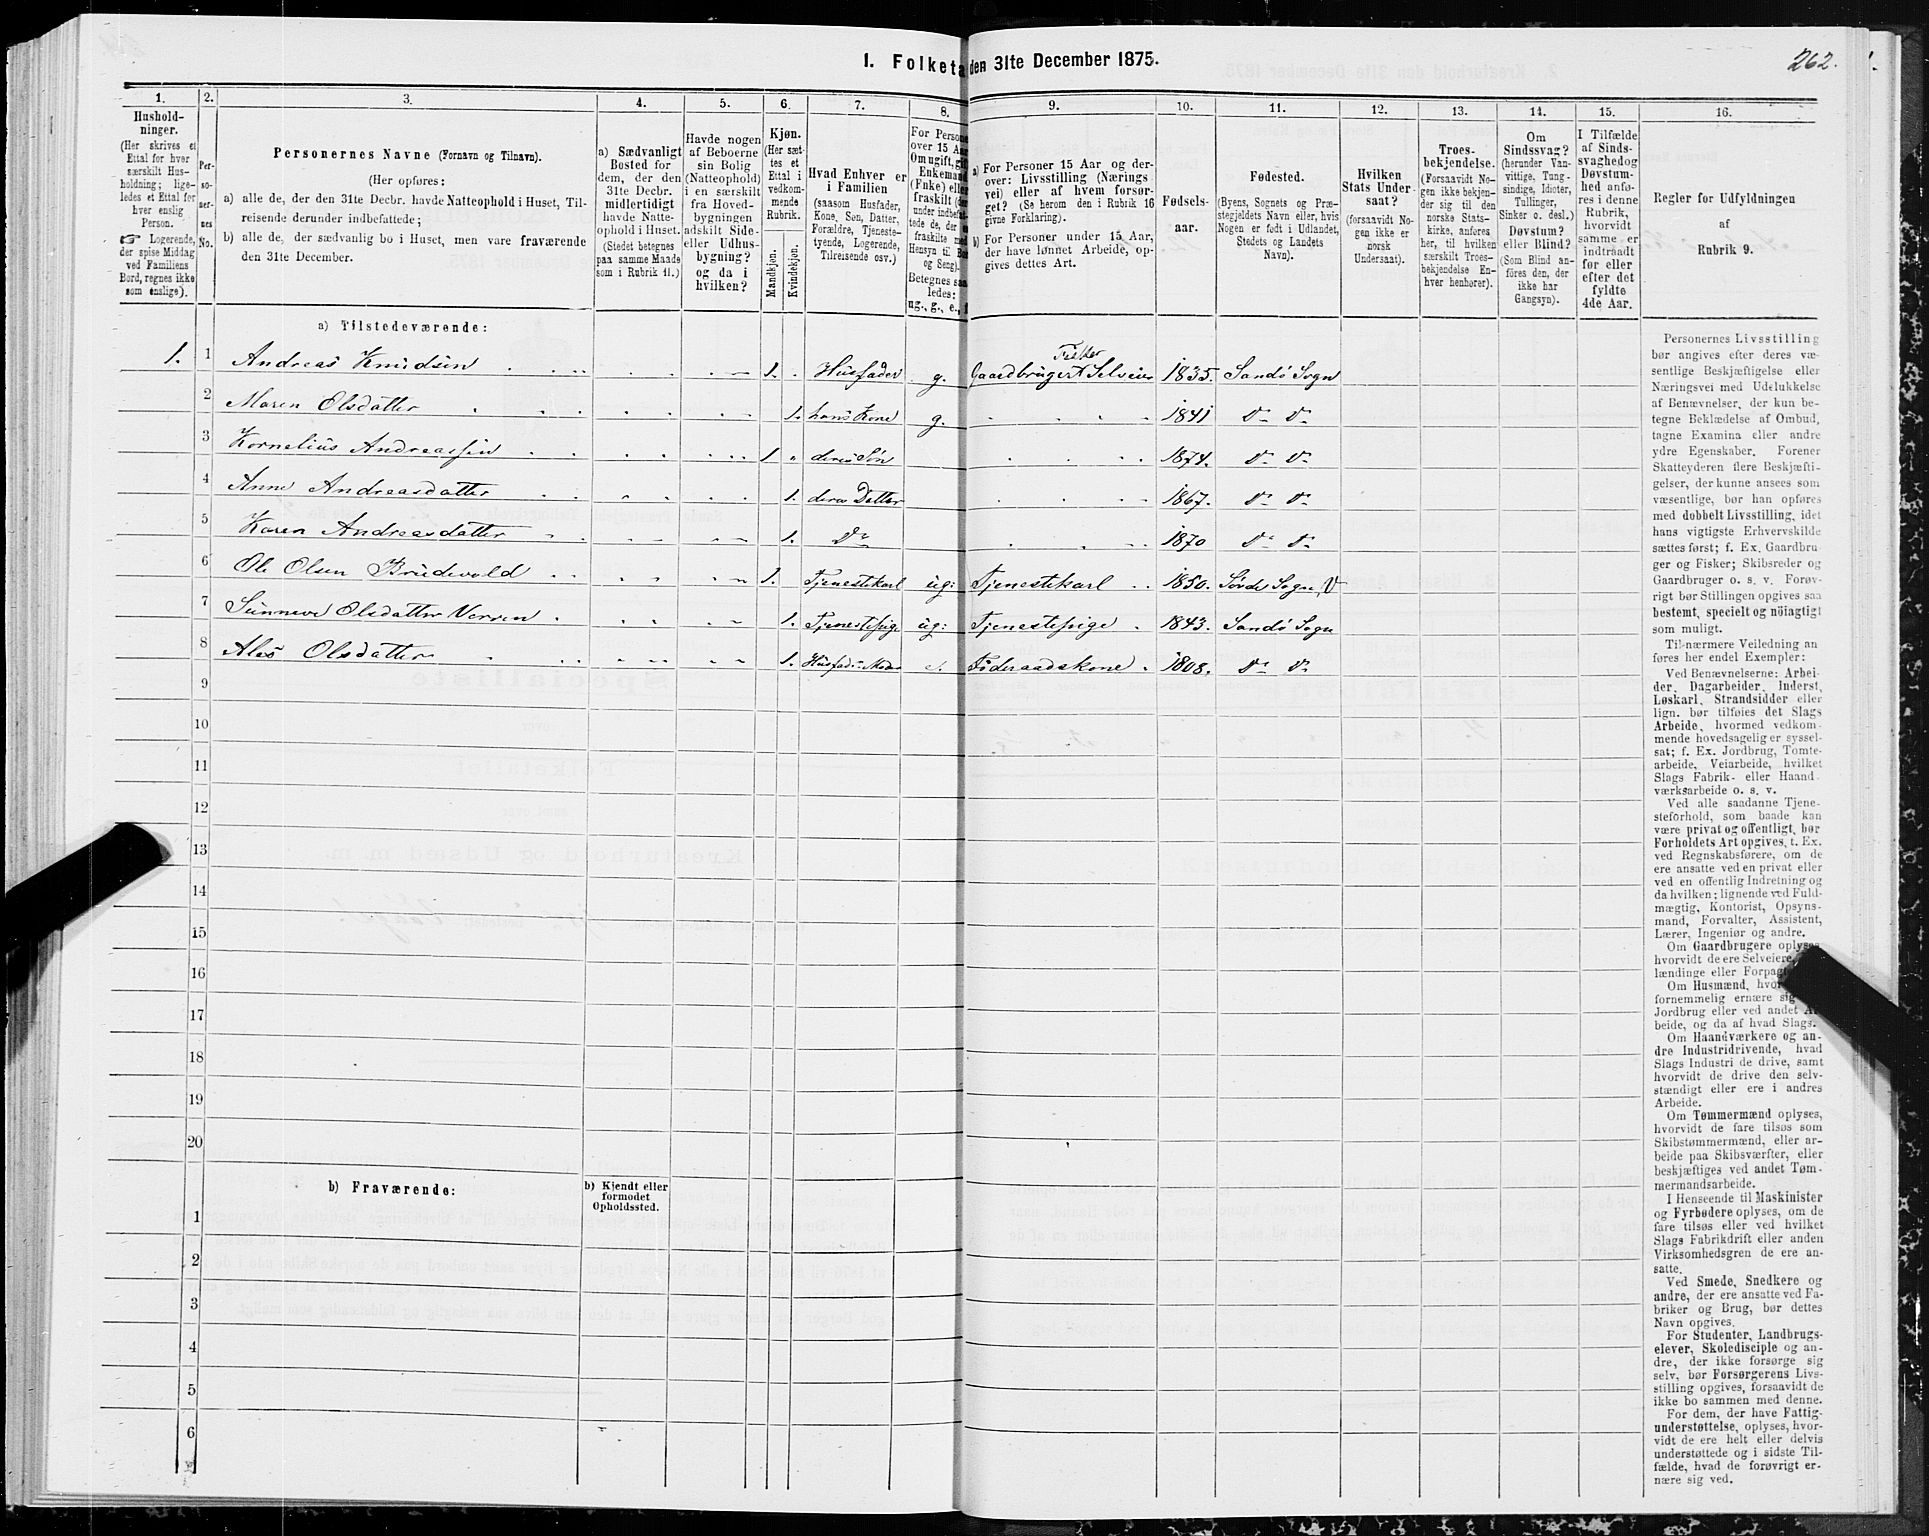 262.
1. Folketa den 31te December 1875.
1. 2. 3. 4. 5. 6. 7. 8. 9. 10. 11. 12. 13. 14. 15. 16.
Hushold-
ninger.
(Her skrives et
Ettal for hver
særskilt Hus-
holdning; lige-
ledes et Ettal for
hver enslig
Person.
☞ Logerende,
der spise Middag
ved Familiens
Bord, regnes ikke
som enslige).
Per-
so-
ner-
nes
No.
Personernes Navne (Fornavn og Tilnavn).
(Her opføres:
a) alle de, der den 31te Decbr. havde Natteophold i Huset, Til-
reisende derunder indbefattede;
b) alle de, der sædvanlig bo i Huset, men vare fraværende
den 31te December.
a) Sædvanligt
Bosted for
dem, der den
31te Decbr.
midlertidigt
havde Natte-
ophold i Huset.
(Stedet betegnes
paa samme Maade
som i Rubrik 11.)
Havde nogen
af Beboerne
sin Bolig
(Natteophold)
i en særskilt
fra Hoved-
bygningen
adskilt Side-
eller Udhus-
bygning?
og da i
hvilken?
Kjøn.
(Her sæt-
tes et
Ettal i
vedkom-
mende
Rubrik.
Mandkjøn.
Kvindekjøn.
Hvad Enhver er
i Familien
(saasom Husfader,
Kone, Søn, Datter,
Forældre, Tjeneste-
tyende, Logerende,
Tilreisende osv.)
For Persone
over 15 Aa
Om ugift, gif
Enkemand
(Enke) elle
fraskilt (der
under indbefat
tede de, der e
fraskilte med
Hensyn til Bo
og Seng).
Betegnes saa
ledes:
ug., g., e., f
a) For Personer 15 Aar og der-
over: Livsstilling (Nærings
vei) eller af hvem forsør-
get? (Se herom den i Rubrik 16
givne Forklaring).
b) For Personer under 15 Aar,
der have lønnet Arbeide, op-
gives dettes Art.
Fødsels-
aar.
Fødested.
(Byens, Sognets og Præ-
stegjeldets Navn eller, hvis
Nogen er født i Udlandet,
Stedets og Landets
Navn).
Hvilken
Stats Under-
saat?
(forsaavidt No-
gen ikke er
norsk
Undersaat).
Troes-
bekjendelse.
(Forsaavidt No-
gen ikke bekjen-
der sig til den
norske Stats-
kirke, anføres
her, til hvilken
særskilt Troes-
bekjendelse En-
hver henhører).
Om
Sindssvag?
(herunder Van-
vittige, Tung-
sindige, Idioter,
Tullinger,
Sinker o. desl.)
Døvstum?
eller Blind?
(Som Blind an-
føres den, der
ikke har
Gangsyn).
I Tilfælde
af Sinds-
svaghedog
Døvstum-
hed anfø-
res i denne
Rubrik,
hvorvidt
samme er
indtraadt
før eller
efter det
fyldte
4de Aar.
Regler for Udfyldningen
af
Rubrik 9.
a) Tilstedeværende:
1. 1 Andreas Knudsen 1. Husfader g. Gaardbruger Fisker Selveier 1835. Sandø Sogn
2 Maren Olsdatter 1. hans Kone g. 1841 Do Do
3 Kornelius Andreassen 1 deres Søn 1874. Do Do
4 Anne Andreasdatter 1 deres Datter 1867. Do Do
5 Karen Andreasdatter 1. Do 1870 Do Do
6 Ole Olsen Brudevold 1. Tjenestekarl ug: Tjenestekarl 1850. Søvde Sogn V
7 Sunneve Olsdatter Verven 1. Tjenestepige ug: Tjenestepige 1843. Sandø Sogn
8 Ales Olsdatter 1. Husfad: Moder e. Føderaadskone 1808. Do Do
9
10
11
12
13
14
15
16
17
18
19
20
b) Fraværende:
b) Kjendt eller
formodet
Opholdssted.
1
2
3
4
5
6
Personernes Livsstilling
bør angives efter deres væ-
sentlige Beskjæftigelse eller
Næringsvei med Udelukkelse
af Benævnelser, der kun be-
tegne Beklædelse af Ombud,
tagne Examina eller andre
ydre Egenskaber. Forener
Skatteyderen flere Beskjæfti-
gelser, der kunne ansees som
væsentlige, bør han opføres
med dobbelt Livsstilling, idet
hans vigtigste Erhvervskilde
sættes først; f. Ex. Gaardbru-
ger og Fisker; Skibsreder og
Gaardbruger o. s. v. Forøv-
rigt bør Stillingen opgives saa
bestemt, specielt og nøiagtigt
som muligt.
Til nærmere Veiledning an
føres her endel Exempler:
Ved Benævnelserne: Arbei-
der, Dagarbeider, Inderst,
Løskarl, Strandsidder eller
lign. bør tilføies det Slags
Arbeide, hvormed vedkom-
mende hovedsagelig er syssel-
sat; f. Ex. Jordbrug, Tomte-
arbeide, Veiarbeide, hvilket
Slags Fabrik- eller Haand
værksarbeide o. s. v.
Ved alle saadanne Tjene-
steforhold, som baade kan
være privat og offentligt, bør
Forholdets Art opgives, t. Ex.
ved Regnskabsførere, om de
ere ansatte ved en privat eller
ved en offentlig Indretning og
da hvilken; lignende ved Fuld-
mægtig, Kontorist, Opsyns-
mand, Forvalter, Assistent,
Lærer, Ingeniør og andre.
Om Gaardbrugere oplyses,
hvorvidt de ere Selveiere,
lændinge eller Forpagt
Om Husmænd, hvor
fornemmelig ernære sig
Jordbrug eller ved andet Ar
beide, og da af hvad Slags.
Om Haandværkere og an-
dre Industridrivende, hvad
Slags Industri de drive, samt
hvorvidt de drive den selv-
stændigt eller ere i andres
Arbeide.
Om Tømmermænd oplyses,
hvorvidt de fare tilsøs som
Skibstømmermænd, eller ar-
beide paa Skibsværfter, eller
beskjæftiges ved andet Tøm-
mermandsarbeide.
I Henseende til Maskinister
og Fyrbødere oplyses, om de
fare tilsøs eller ved hvilket
Slags Fabrikdrift eller anden
Virksomhedsgren de ere an-
satte.
Ved Smede, Snedkere og
andre, der ere ansatte ved Fa-
briker og Brug, bør dettes
Navn opgives.
For Studenter, Landbrugs-
elever, Skoledisciple og an-
dre, der ikke forsørge sig
selv, bør Forsørgerens Livs-
stilling opgives, forsaavidt de
ikke bo sammen med denne.
For dem, der have Fattig-
understøttelse, oplyses, hvor-
vidt de ere helt eller delvis
understøttede og i sidste Til-
fælde, hvad de forøvrigt er-
nære sig ved.